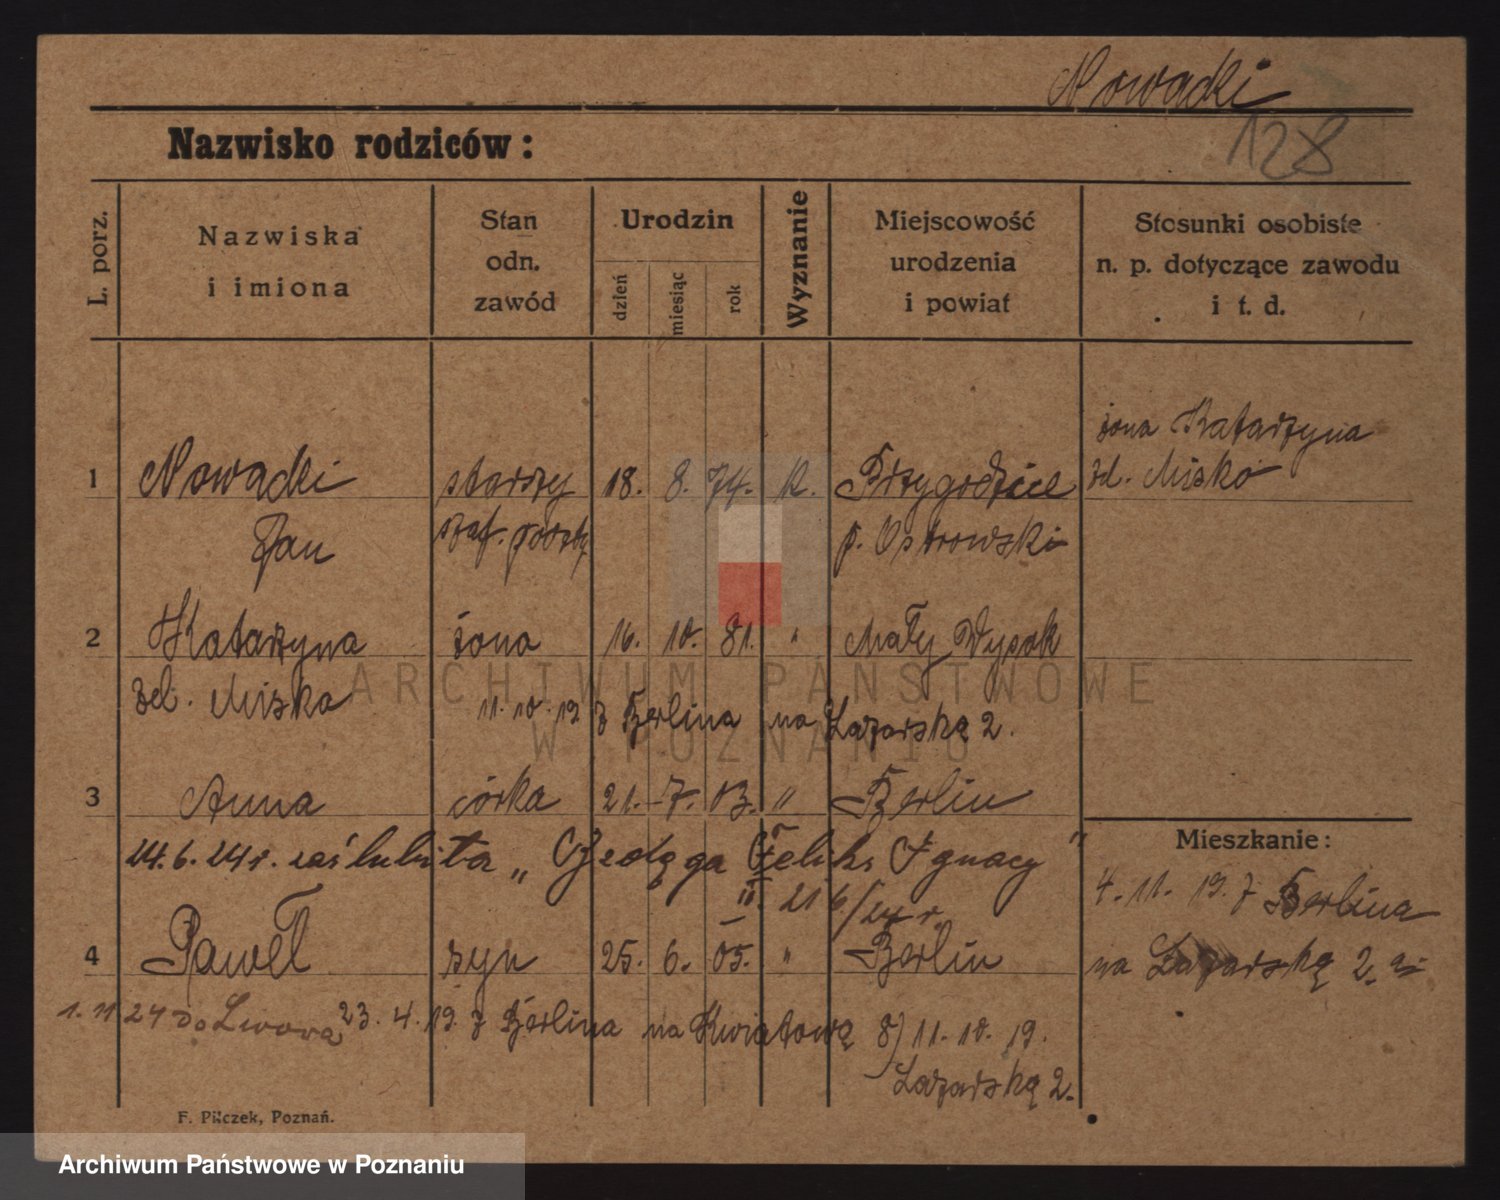 Nowacki
128
Nazwisko rodziców:
L. porz.
Nazwiska i imiona
Stan odn. zawód
Urodzin
dzień
miesiąc
rok
Wyznanie
Miejscowość urodzenia i powiat
Stosunki osobiste n. p. dotyczące zawodu i t. d.
żona Katarzyna
zd. Misko
1 Nowacki starszy 18. 8. 74. K. Przygodzice
Jan szaf. poczty p. Ostrowski
2 Katarzyna żona 16. 10. 81. " Mały Wysok
zd. Miska 11. 10. 19 z Berlina na Łazarską 2.
3 Anna córka 21. 7. 03. " Berlin
14.6.24 r. zaślubiła „ Feliks Ignacy "
II. 21 6/24 r.
4 Paweł syn 25. 6. 05. " Berlin
1. 11 24 do Lwowa 23. 4. 19. z Berlina na Kwiatową 8) 11. 10. 19.
Łazarską 2.
Mieszkanie:
4. 11. 19. z Berlina
na Łazarską 2.
F. Pilczek, Poznań.
ARCHIWUM PAŃSTWOWE
W POZNANIU
Archiwum Państwowe w Poznaniu